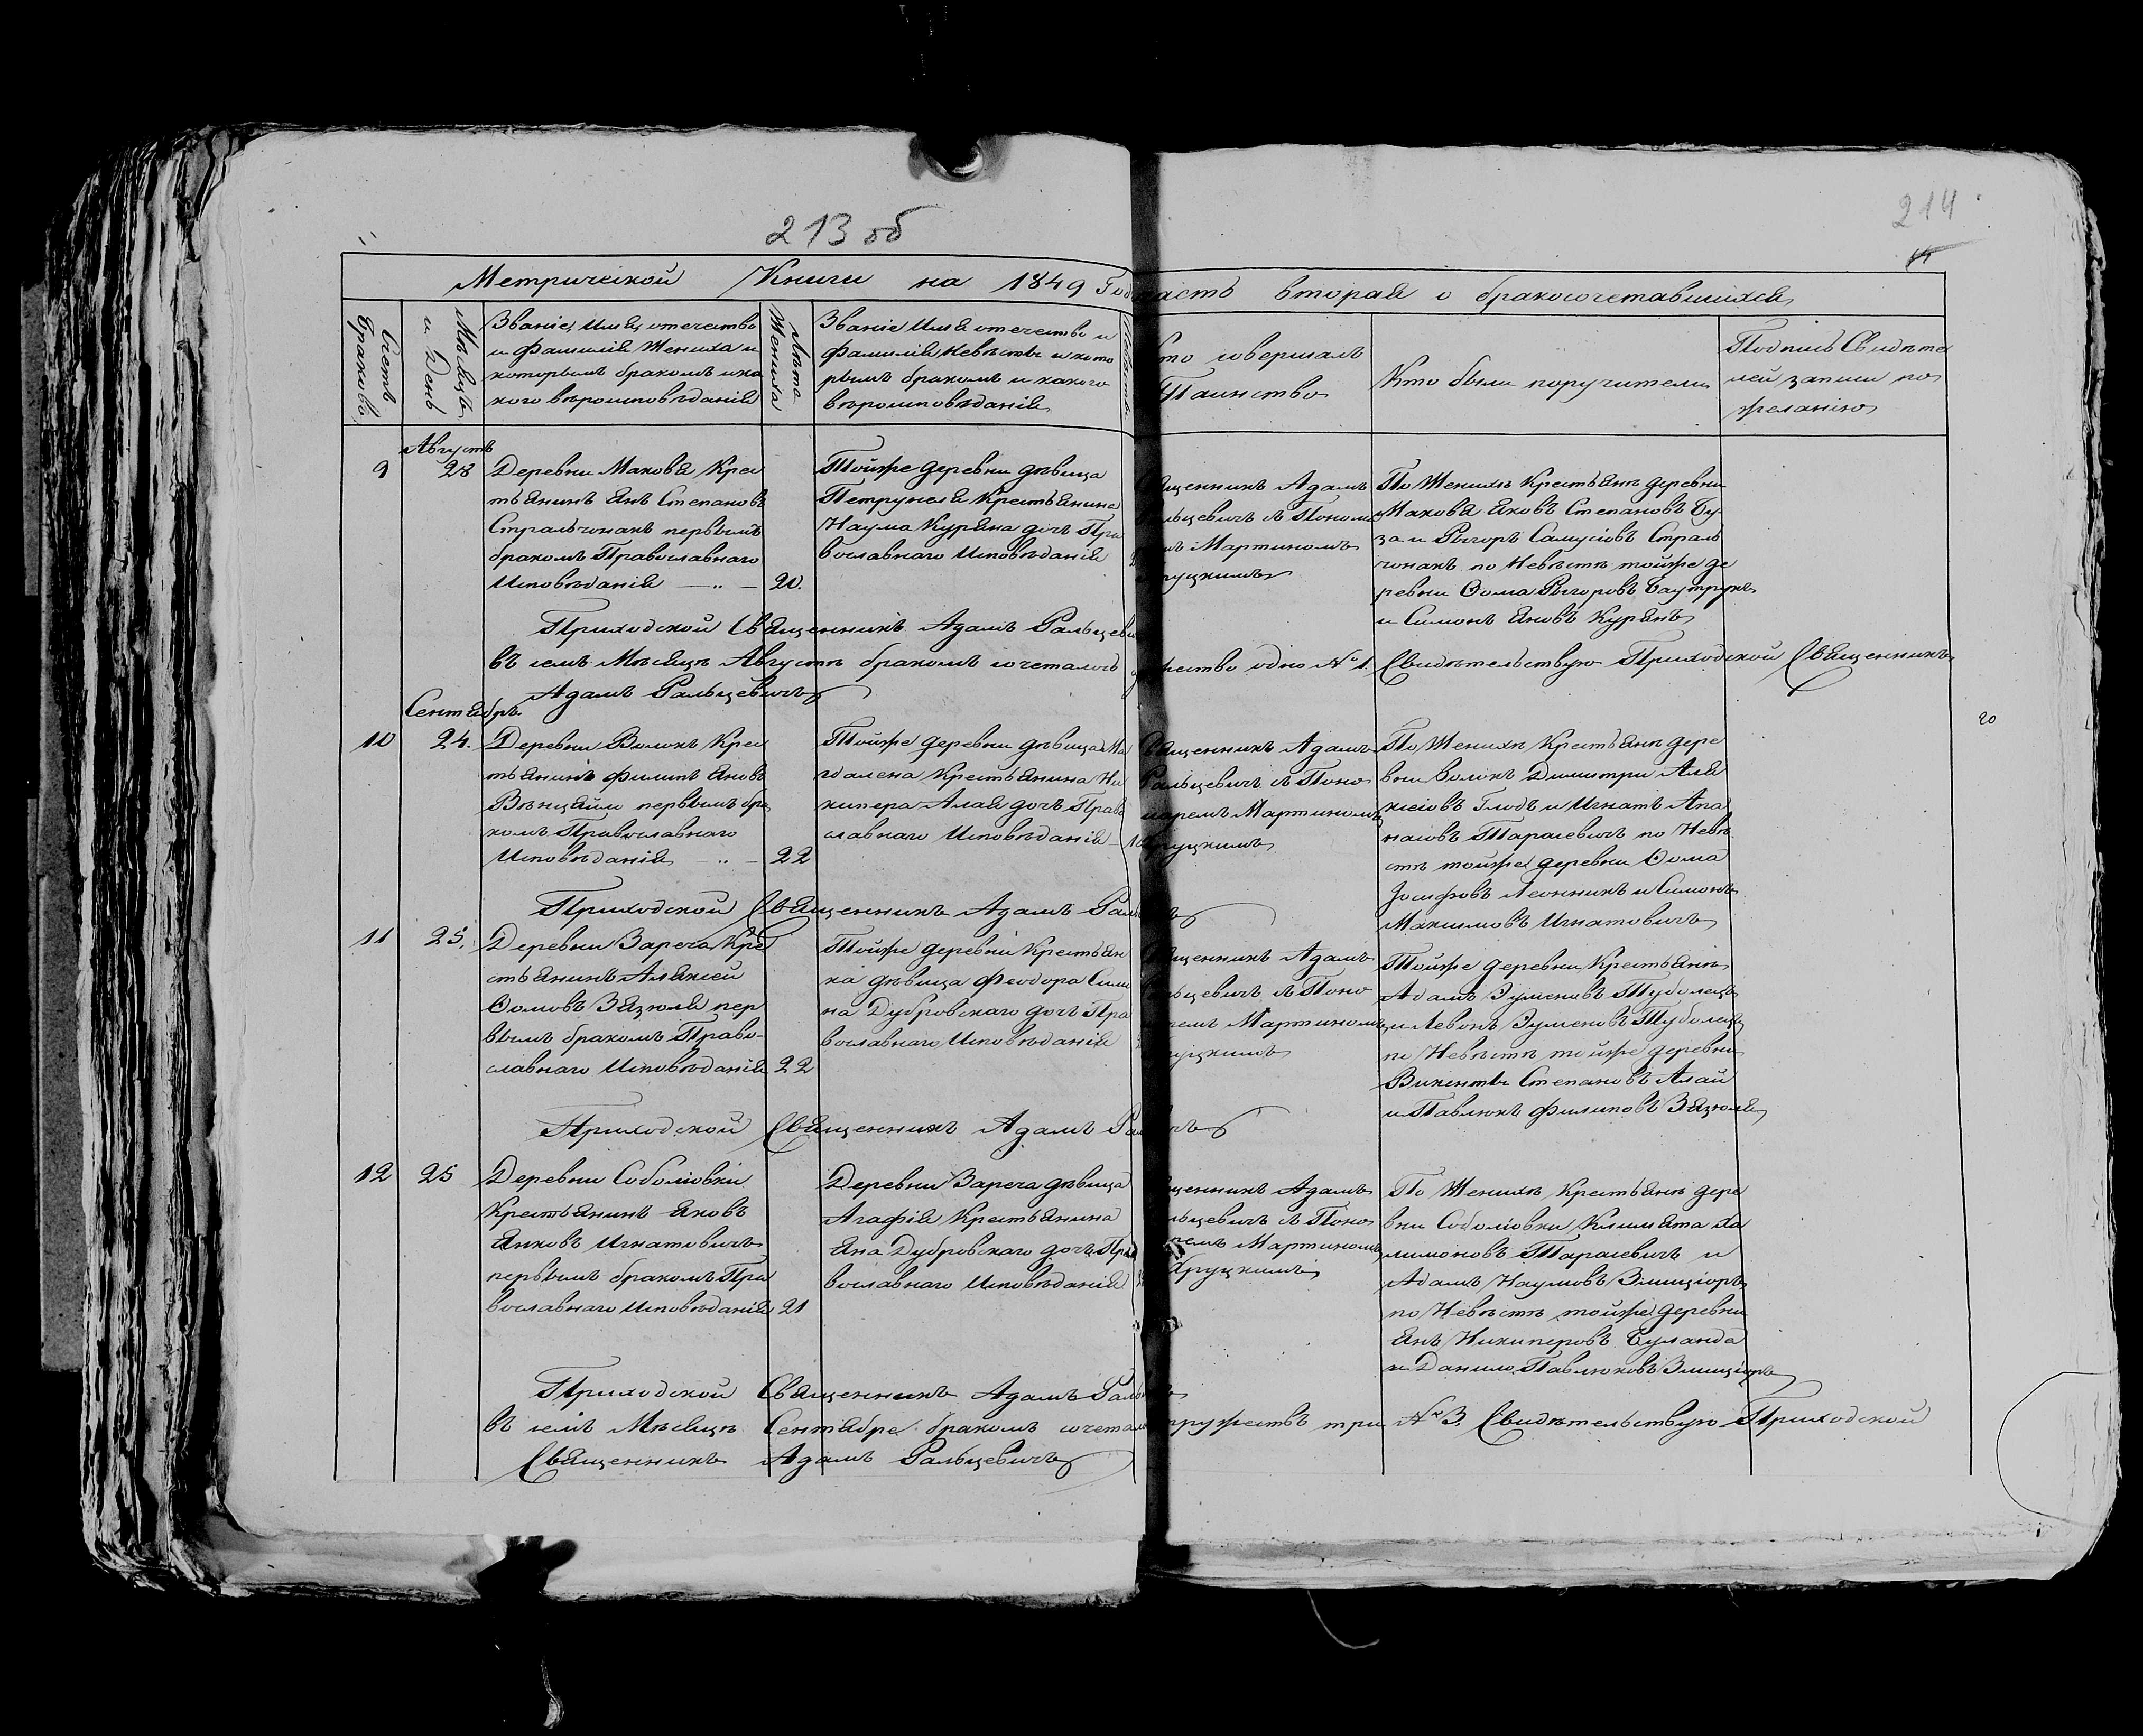 213 об
214
Метрической Книги на 1849 Год часть вторая о бракосочетавшихся
Счетъ Браковъ
Мѣсяцъ и День
Званіе, Имя, отечество
и фамилія Жениха и
которымъ бракомъ и ка
кого вѣроисповѣданія
Лѣта Жениха
Званіе Имя отечество и
фамилія Невѣсты и кото
рымъ бракомъ и какого
вѣроисповѣданія
Невѣсты
то совершалъ
Таинство
Кто были поручители
Подпись Свидѣте
лей записи по
желанію
Августъ
9 28 Деревни Маковя Крес
тьянинъ Янъ Степановъ
Стральчонакъ первымъ
бракомъ Православнаго
Исповѣданія 20.
Тойже деревни дѣвица
Петрунеля Крестьянина
Наума Куряна дочь Пра
вославнаго Исповѣданія
щенникъ Адамъ
льцевичъ с Понома
Мартиномъ
руцкимъ
По Женихѣ Крестьяне деревни
Маковя Яковъ Степановъ Бу
за и Рыгоръ Самусіовъ Страль
чонакъ по Невѣстѣ тойже де
ревни Ѳома Рыгоровъ Баутрукъ
и Симонъ Яновъ Курянъ
Приходской Священникъ Адамъ Ральцеви
въ семъ Мѣсяцѣ Августѣ бракомъ сочеталось
жество одно № 1. Свидѣтельствую Приходской Священникъ
Адамъ Ральцевичъ
Сентябрь
20
10 24. Деревни Волокъ Крес
тьянинъ Филипъ Яновъ
первымъ бра
комъ Православнаго
Исповѣданія 22
Тойже деревни дѣвица Ма
гдалена Крестьянина Ни
кипера Алая дочь Право
славнаго Исповѣданія
щенникъ Адамъ
Ральцевичъ с Поно
маремъ Мартиномъ
руцкимъ
По Женихѣ Крестьяне дере
вни Волокъ Димитри Аля
ксіовъ Глодъ и Игнатъ Апа
насовъ Тарасевичъ по Невѣ
стѣ тойже деревни Ѳома
Іосифовъ Леонникъ и Симонъ
Максимовъ Игнатовичъ
Приходской Священникъ Адамъ Раль
11 25. Деревни Зареча Кре
стьянинъ Алексей
Ѳомовъ Зязюля пер
вымъ бракомъ Право-
славнаго Исповѣданія 22
Тойже деревни Крестьян
ка дѣвица Феодора Сим
на Дубровскаго дочь Пра
вославнаго Исповѣданія
щенникъ Адамъ
льцевичъ с Поно
ремъ Мартиномъ
руцкимъ
Тойже деревни Крестьяне
Адамъ Зуменовъ Туболецъ
и Левонъ Зуменовъ Туболецъ
по Невѣстѣ тойже деревни
Викентъ Степановъ Алай
и Павлюкъ Филиповъ Зязюля
Приходской Священникъ Адамъ Ра
12 25 Деревни Соболіовки
Крестьянинъ Яковъ
Янковъ Игнатовичъ
первымъ бракомъ Пра
вославнаго Исповѣданія 21
Деревни Зареча дѣвица
Агафія Крестьянина
Яна Дубровскаго дочь Пра
вославнаго Исповѣданія
щенникъ Адамъ
льцевичъ с Поно
ремъ Мартиномъ
Хруцкимъ
По Женихѣ Крестьяне дере
вни Соболіовки Климята Ха
лимоновъ Тарасевичъ и
Адамъ Наумовъ Змициоръ
по Невѣстѣ тойже деревни
Янъ Никиперовъ Буланда
и Данило Павлюковъ Змициоръ
Приходской Священникъ Адамъ Раль
въ семъ Мѣсяцѣ Сентябре бракомъ сочетал
пружествъ три № 3. Свидѣтельствую Приходской
Священникъ Адамъ Ральцевичъ